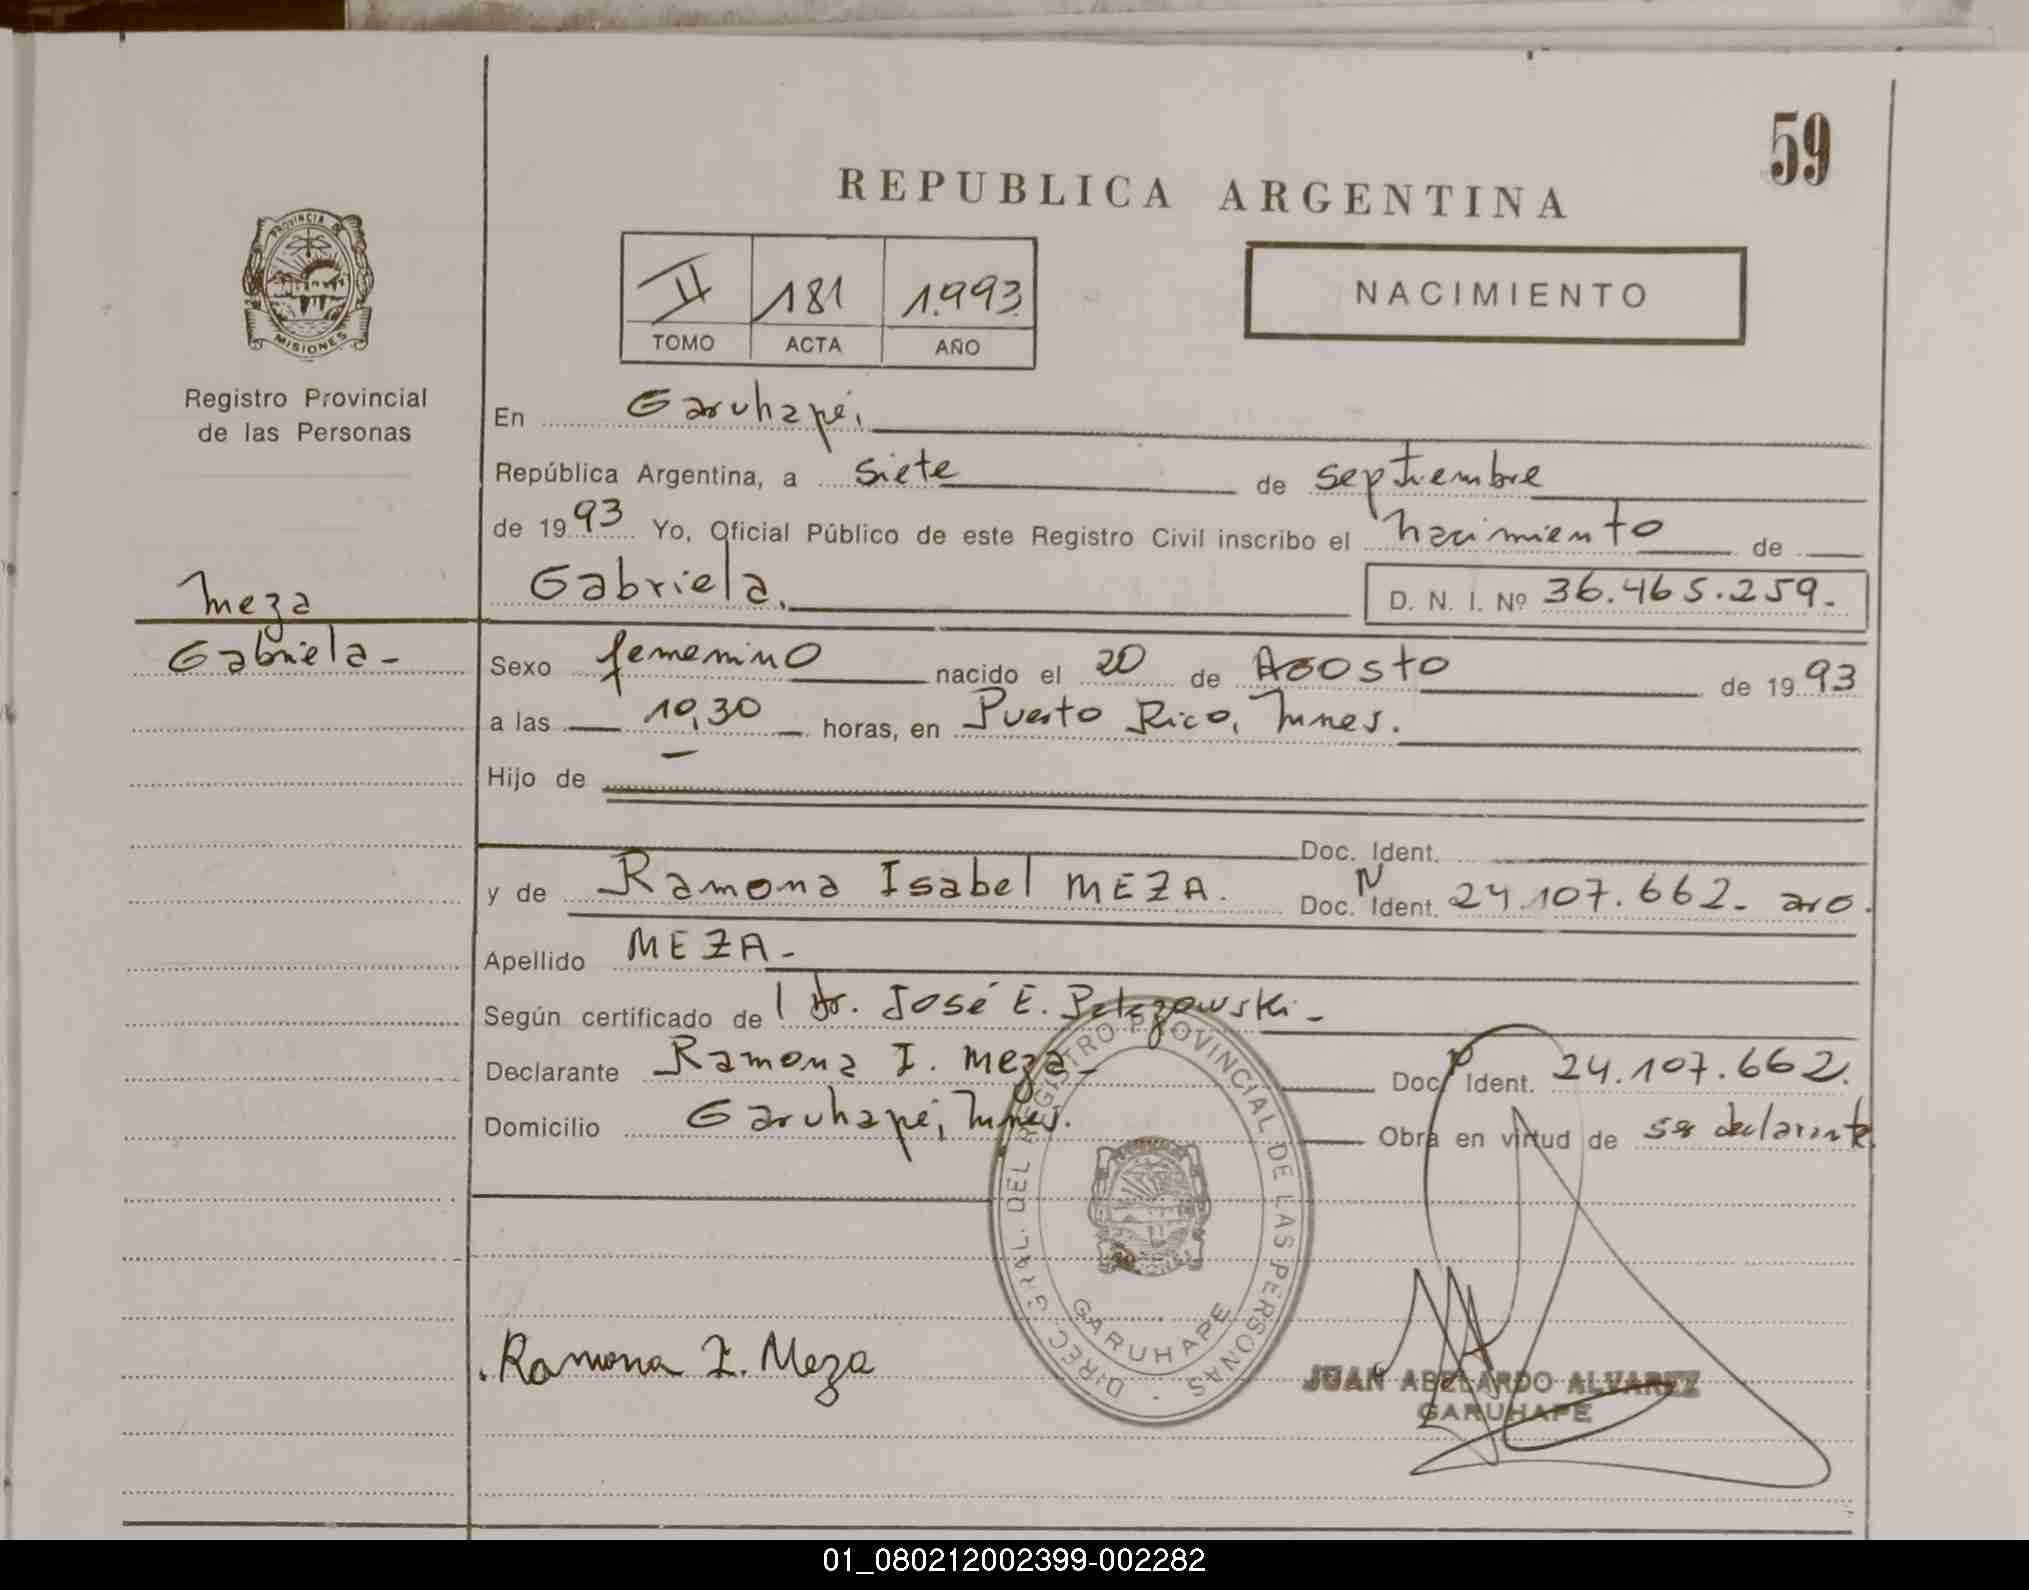 59
REPUBLICA ARGENTINA
PROVINCIA DE
MISIONES
II 181 1.993.
TOMO ACTA AÑO
NACIMIENTO
Registro Provincial
de las Personas
En Garuhapé,
República Argentina, a siete de septiembre
de 1993 Yo, Oficial Público de este Registro Civil inscribo el nacimiento de
Meza
Gabriela, D. N. I. Nº 36.465.259.-
Gabriela-
Sexo femenino nacido el 20 de Agosto de 1993
a las 10,30 horas, en Puerto Rico, Mnes.
Hijo de
Doc. Ident.
y de Ramona Isabel MEZA. Doc. N Ident. 24.107.662-
Apellido MEZA-
Según certificado de l Dr. José E.
Declarante Ramona I. Meza- Doc. Ident. 24.107.662.
Domicilio Garuhapé, Mnes. Obra en virtud de ser declarante.
DIREC. GRAL. DEL REGISTRO PROVINCIAL DE LAS PERSONAS
GARUHAPE
Ramona I. Meza
JUAN ABELARDO ALVAREZ
GARUHAPE
01_080212002399-002282